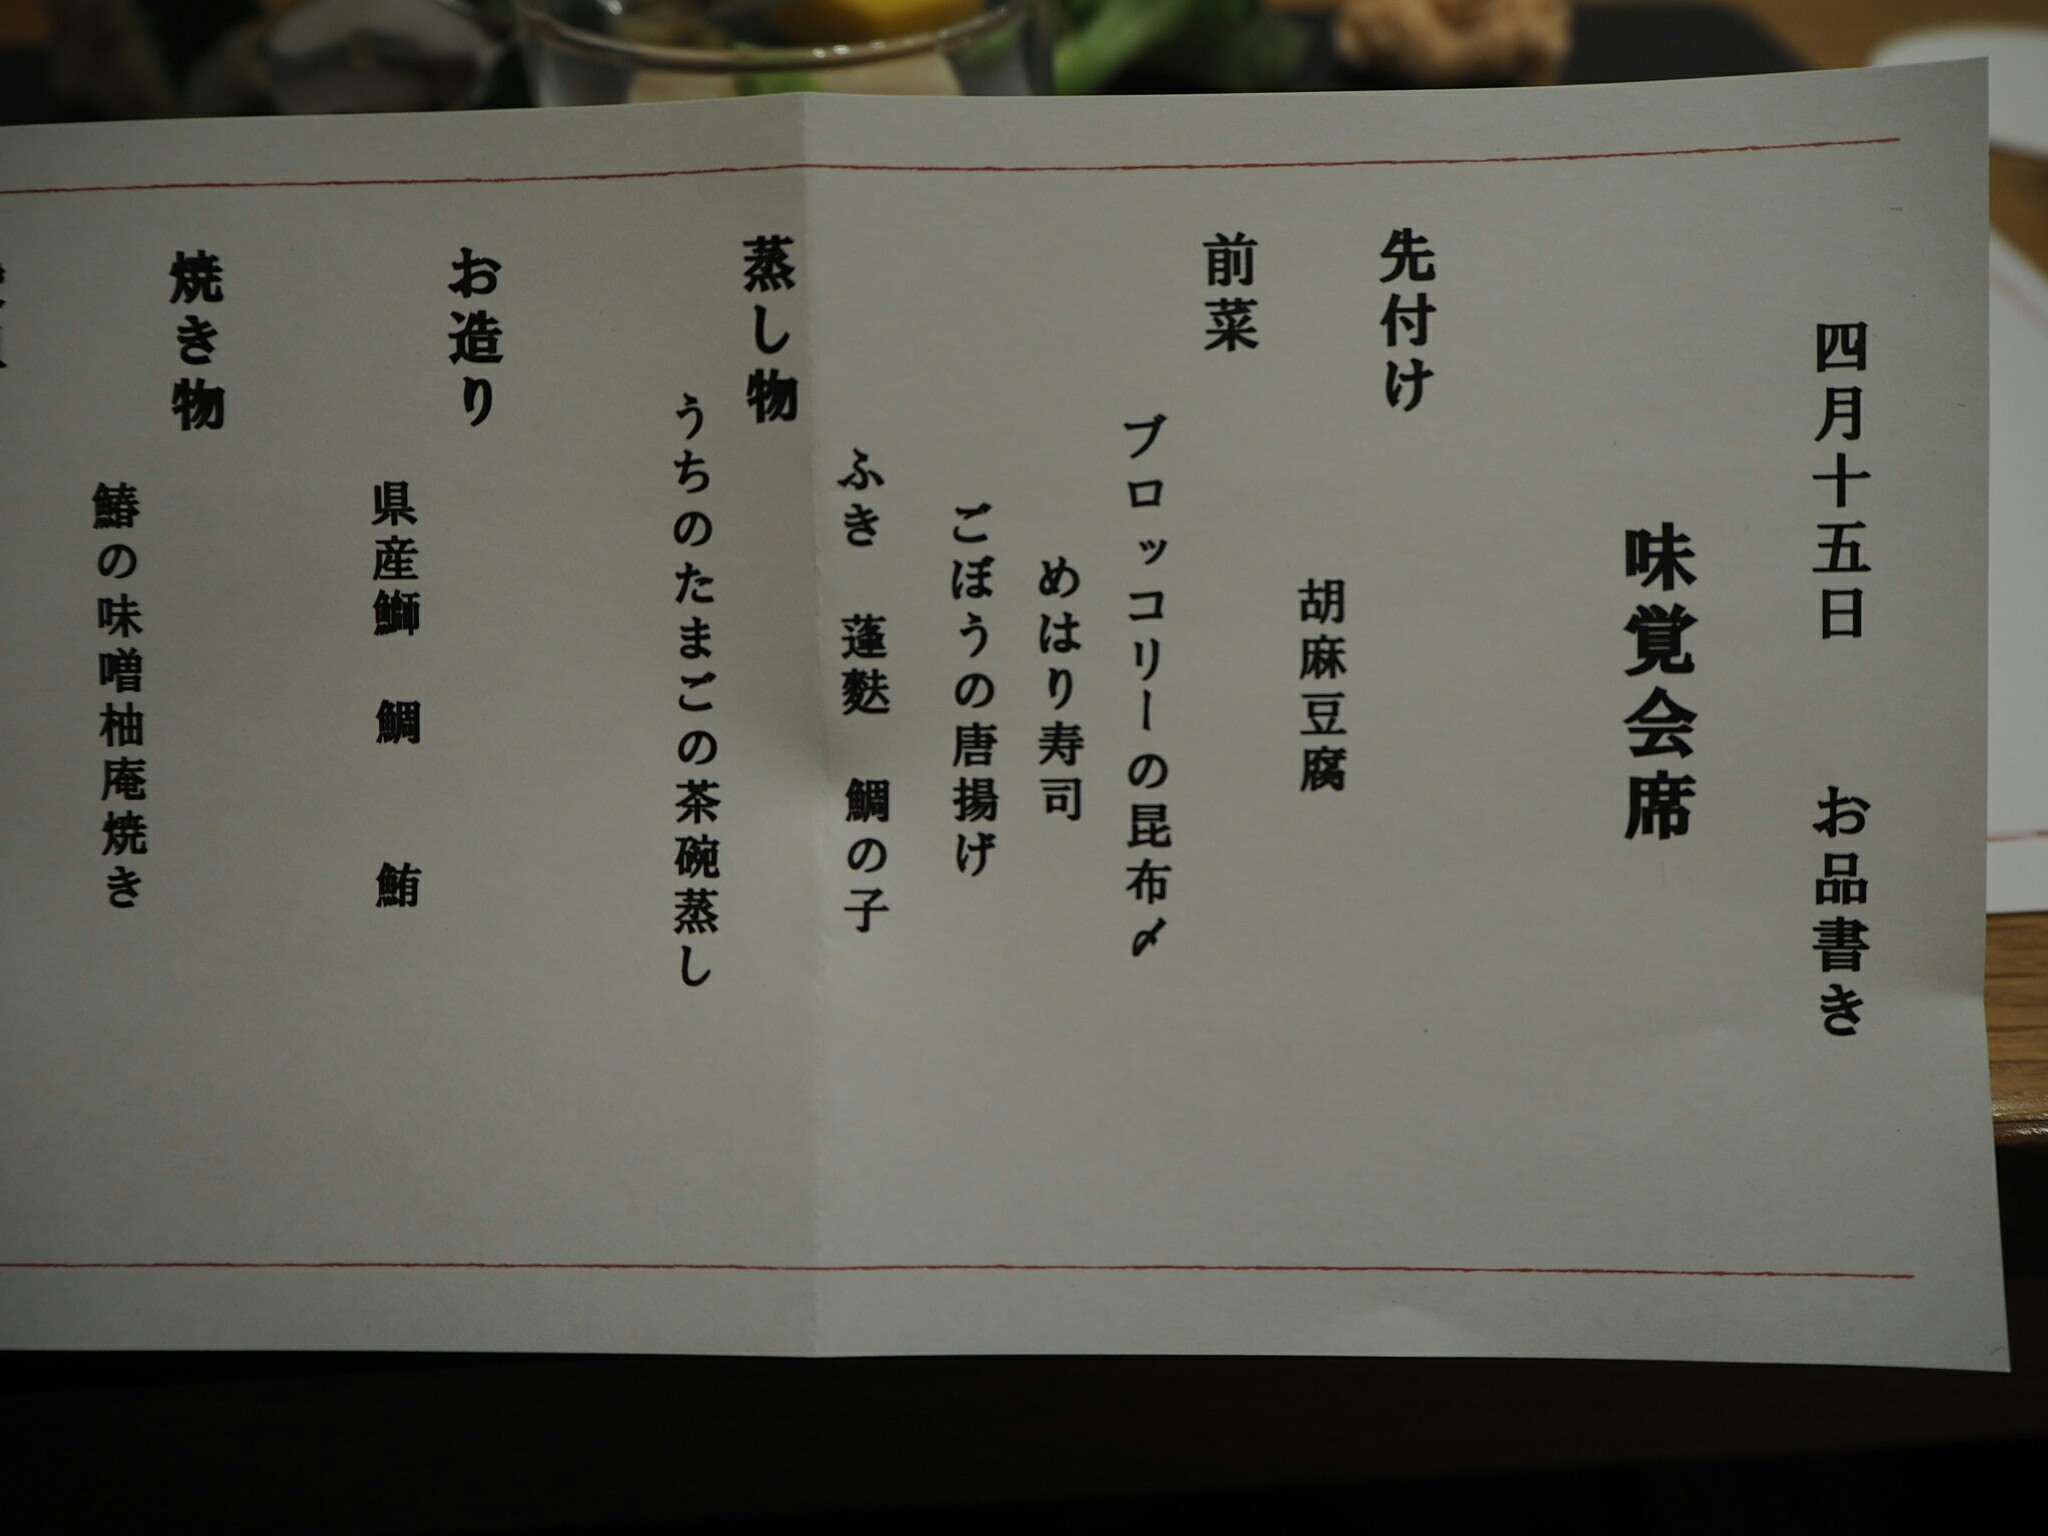 四月十五日　お品書き
味覚会席
先付け
胡麻豆腐
前菜
ブロッコリーの昆布〆
めはり寿司
ごぼうの唐揚げ
ふき　蓬麩　鯛の子
蒸し物
うちのたまごの茶碗蒸し
お造り
県産鰤　鯛　鮪
焼き物
鰆の味噌柚庵焼き